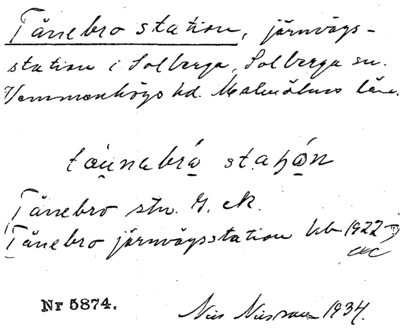 Tånebro station, järnvägs-
station i Solberga, Solberga sn.
Vemmenhögs hd. Malmöhus län.
Tånebro stn. G. K.
Tånebro järnvägsstation kb 1922
Nr 5874.
Nils Nilsson 1934.